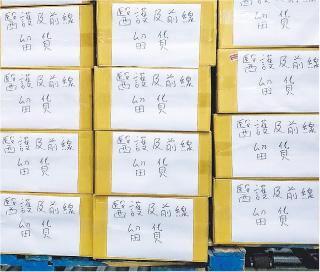 醫護及前線
留貨
醫護及前線
留貨
醫護及前線
留貨
醫護及前線
留貨
醫護及前線
留貨
醫護及前線
留貨
醫護及前線
留貨
醫護及前線
留貨
醫護及前線
留貨
醫護及前線
留貨
醫護及前線
留貨
醫護及前線
留貨